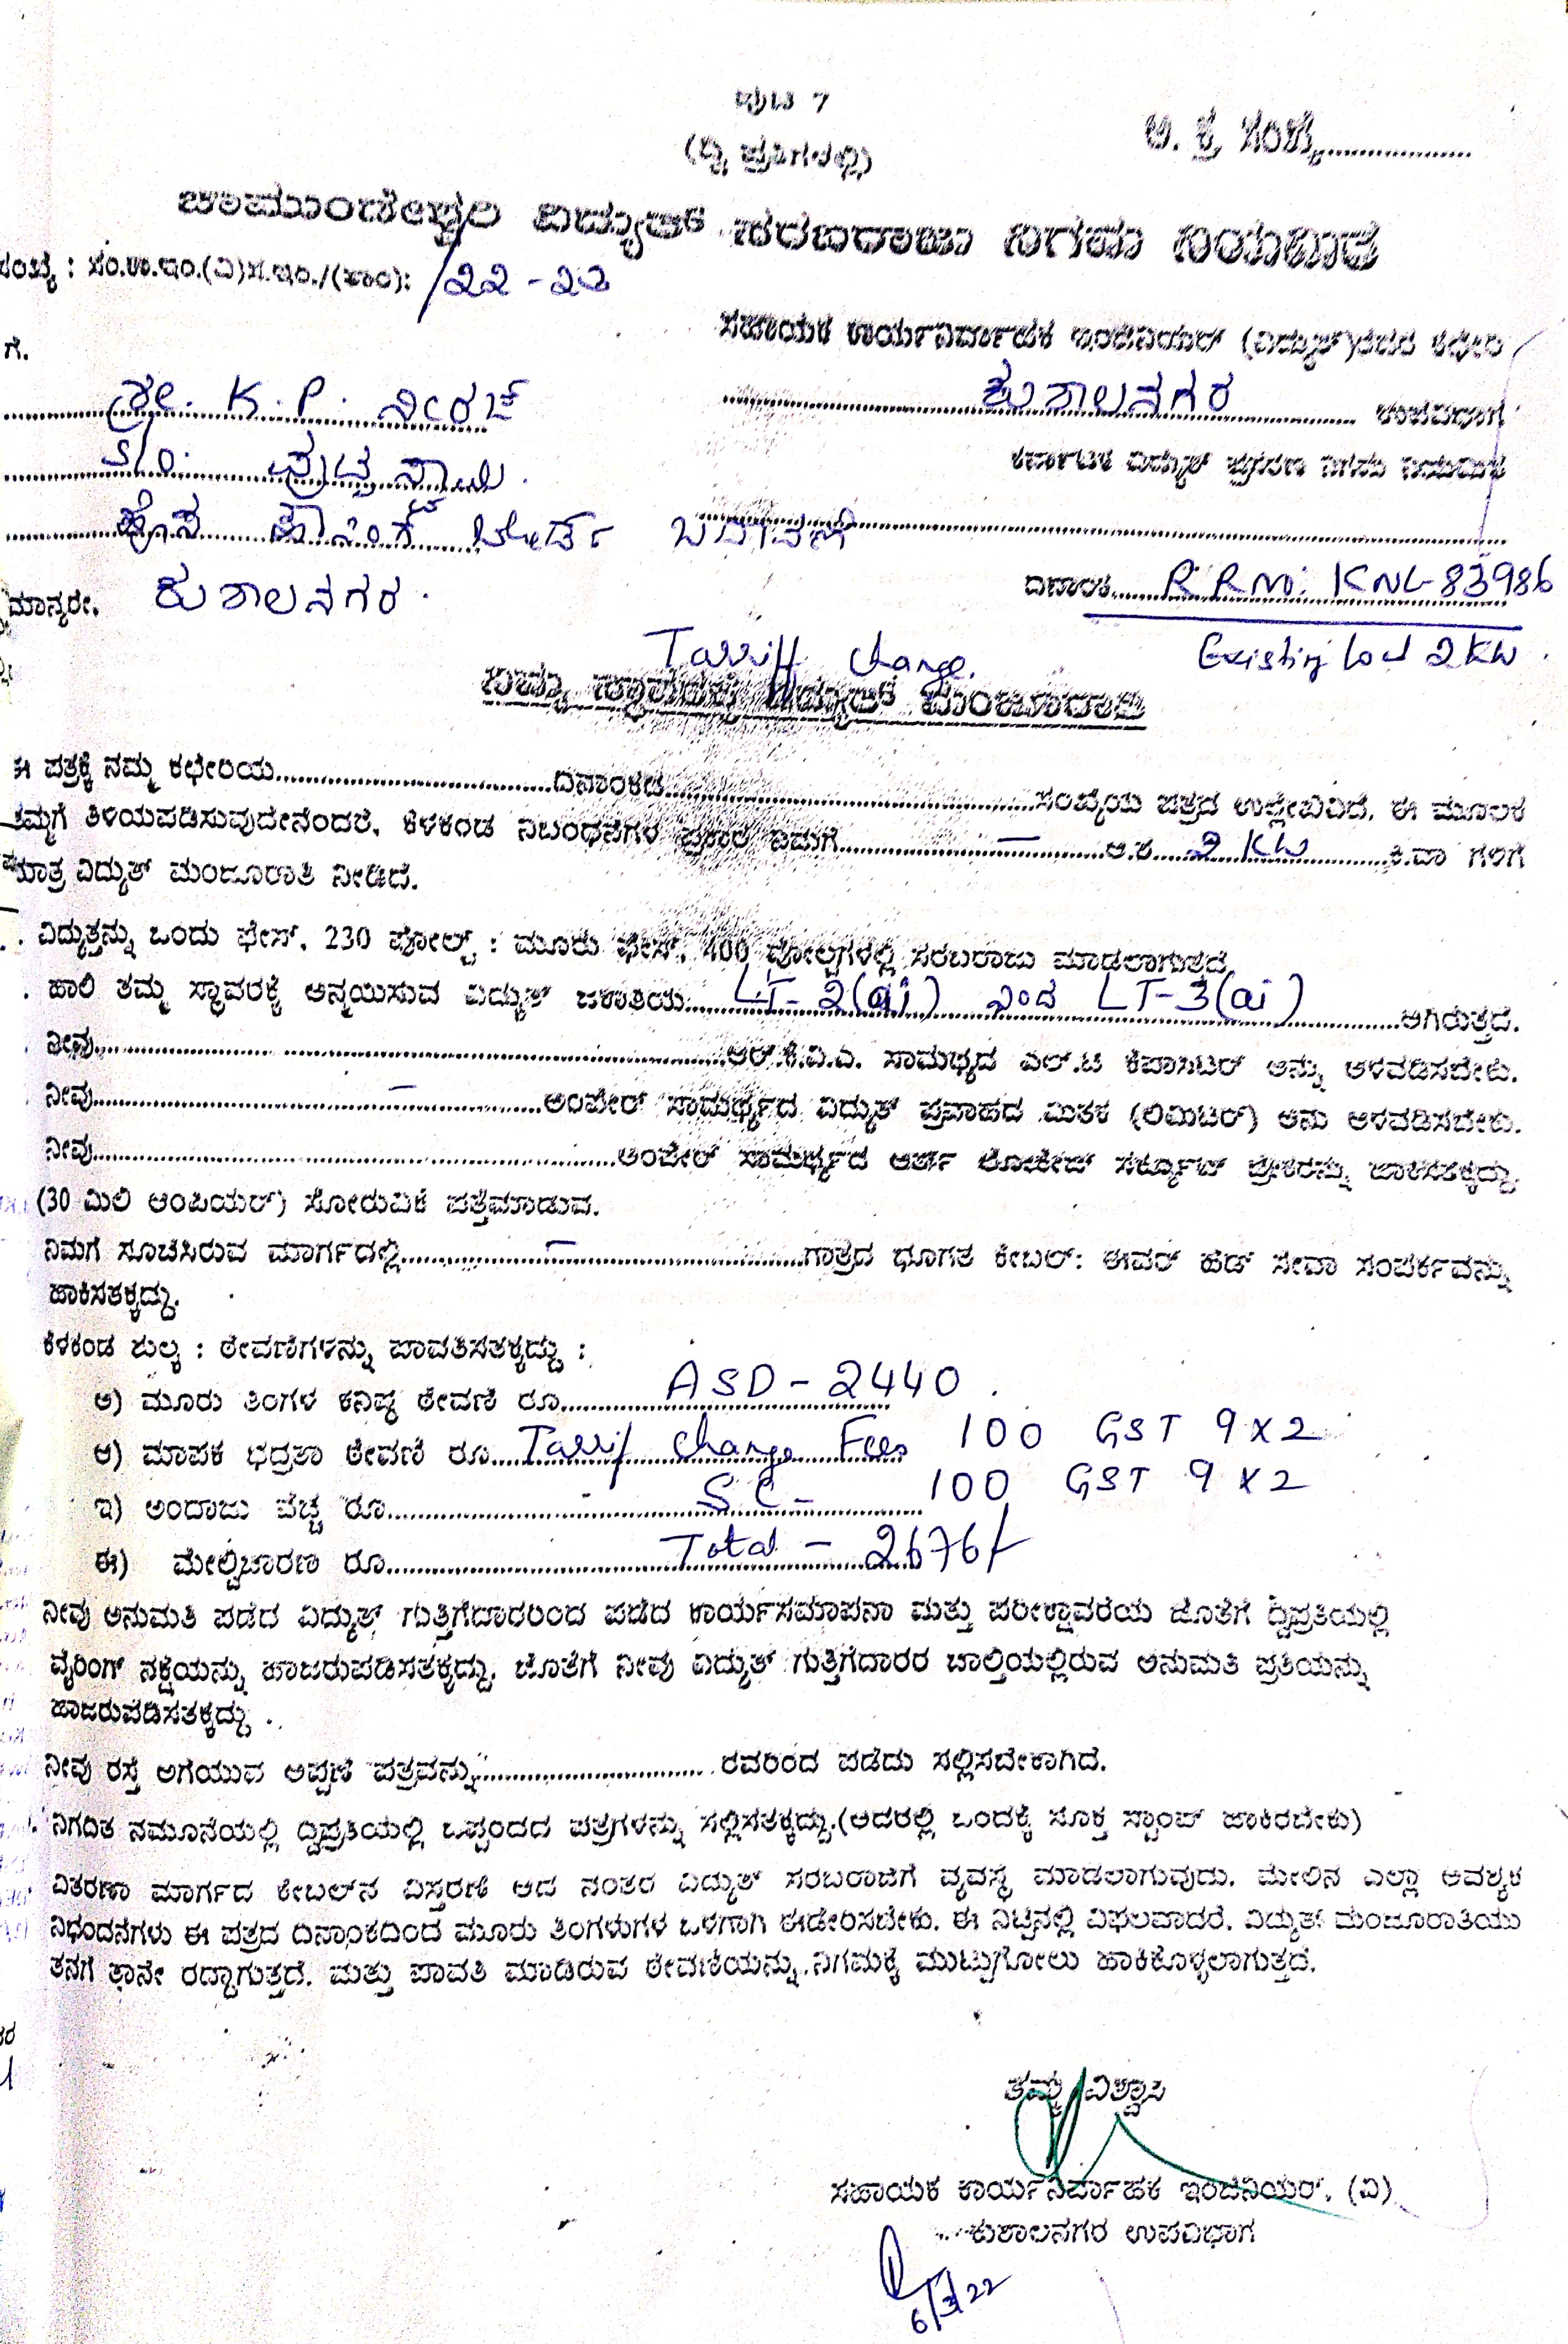 ಪುಟ 7
(ದ್ವಿ ಪ್ರತಿಗಳಲ್ಲಿ)
ಅ. ಕ್ರ ಸಂಖ್ಯೆ
ಚಾಮುಂಡೇಶ್ವರಿ ವಿದ್ಯುತ್ ಸರಬರಾಜು ನಿಗಮ ನಿಯಮಿತ
ಸಂಖ್ಯೆ : ಸಂ.ಕಾ.ಇಂ.(ವಿ)ಸ.ಇಂ./(ಕಾಂ): /22-23
ಸಹಾಯಕ ಕಾರ್ಯನಿರ್ವಾಹಕ ಇಂಜಿನಿಯರ್ (ವಿದ್ಯುತ್)ರವರ ಕಛೇರಿ
ಗೆ.
ಶ್ರೀ. K.P. ನೀರಜ್
ಕುಶಾಲನಗರ ಉಪವಿಭಾಗ
S/o. ಪುಟ್ಟಸ್ವಾಮಿ
ಕರ್ನಾಟಕ ವಿದ್ಯುತ್ ಪ್ರಸರಣ ನಿಗಮ ನಿಯಮಿತ
ಹೊಸ ಹೌಸಿಂಗ್ ಬೋರ್ಡ್ ಬಡಾವಣೆ
ಮಾನ್ಯರೇ, ಕುಶಾಲನಗರ.
ದಿನಾಂಕ R R No: KNL-83986
Tarriff change.
Existing load 2 KW.
ನಿಮ್ಮ ಸ್ಥಾವರಕ್ಕೆ ವಿದ್ಯುತ್ ಮಂಜೂರಾತಿ
ಈ ಪತ್ರಕ್ಕೆ ನಮ್ಮ ಕಛೇರಿಯ ದಿನಾಂಕದ ಸಂಖ್ಯೆಯ ಪತ್ರದ ಉಲ್ಲೇಖವಿದೆ. ಈ ಮೂಲಕ
ತಮ್ಮಗೆ ತಿಳಿಯಪಡಿಸುವುದೇನೆಂದರೆ, ಕೆಳಕಂಡ ನಿಬಂಧನೆಗಳ ಪ್ರಕಾರ ನಿಮಗೆ — ಅ.ಶ 2 KW ಕಿ.ವಾ ಗಳಿಗೆ
ಮಾತ್ರ ವಿದ್ಯುತ್ ಮಂಜೂರಾತಿ ನೀಡಿದೆ.
ವಿದ್ಯುತ್ತನ್ನು ಒಂದು ಫೇಸ್, 230 ವೋಲ್ಟ್ : ಮೂರು ಫೇಸ್, 400 ವೋಲ್ಟಗಳಲ್ಲಿ ಸರಬರಾಜು ಮಾಡಲಾಗುತ್ತದೆ
ಹಾಲಿ ತಮ್ಮ ಸ್ಥಾವರಕ್ಕೆ ಅನ್ವಯಿಸುವ ವಿದ್ಯುತ್ ಜಕಾತಿಯು LT-2(ai) ಇಂದ LT-3(ai) ಆಗಿರುತ್ತದೆ.
ನೀವು ಆರ್.ಕೆ.ವಿ.ಎ. ಸಾಮರ್ಥ್ಯದ ಎಲ್.ಟಿ ಕೆಪಾಸಿಟರ್ ಅನ್ನು ಅಳವಡಿಸಬೇಕು.
ನೀವು — ಅಂಪೇರ್ ಸಾಮರ್ಥ್ಯದ ವಿದ್ಯುತ್ ಪ್ರವಾಹದ ಮಿತಕ (ಲಿಮಿಟರ್) ಅನು ಅಳವಡಿಸಬೇಕು.
ನೀವು ಅಂಪೇರ್ ಸಾಮರ್ಥ್ಯದ ಅರ್ಥ್ ಲೀಕೇಜ್ ಸರ್ಕ್ಯೂಟ್ ಬ್ರೇಕರನ್ನು ಹಾಕಿಸತಕ್ಕದ್ದು.
(30 ಮಿಲಿ ಆಂಪಿಯರ್) ಸೋರುವಿಕೆ ಪತ್ತೆಮಾಡುವ.
ನಿಮಗೆ ಸೂಚಿಸಿರುವ ಮಾರ್ಗದಲ್ಲಿ — ಗಾತ್ರದ ಭೂಗತ ಕೇಬಲ್: ಈವರ್ ಹೆಡ್ ಸೇವಾ ಸಂಪರ್ಕವನ್ನು
ಹಾಕಿಸತಕ್ಕದ್ದು.
ಕೆಳಕಂಡ ಶುಲ್ಕ : ಠೇವಣಿಗಳನ್ನು ಪಾವತಿಸತಕ್ಕದ್ದು :
ಅ) ಮೂರು ತಿಂಗಳ ಕನಿಷ್ಠ ಠೇವಣಿ ರೂ ASD - 2440.
ಆ) ಮಾಪಕ ಭದ್ರತಾ ಠೇವಣಿ ರೂ Tarrif change Fees 100 GST 9 X 2
ಇ) ಅಂದಾಜು ವೆಚ್ಚ ರೂ S C - 100 GST 9 X 2
ಈ) ಮೇಲ್ವಿಚಾರಣ ರೂ Total - 2676/-
ನೀವು ಅನುಮತಿ ಪಡೆದ ವಿದ್ಯುತ್ ಗುತ್ತಿಗೆದಾರರಿಂದ ಪಡೆದ ಕಾರ್ಯಸಮಾಪನಾ ಮತ್ತು ಪರೀಕ್ಷಾವರೆಯ ಜೊತೆಗೆ ದ್ವಿಪ್ರತಿಯಲ್ಲಿ
ವೈರಿಂಗ್ ನಕ್ಷೆಯನ್ನು ಹಾಜರುಪಡಿಸತಕ್ಕದ್ದು, ಜೊತೆಗೆ ನೀವು ವಿದ್ಯುತ್ ಗುತ್ತಿಗೆದಾರರ ಚಾಲ್ತಿಯಲ್ಲಿರುವ ಅನುಮತಿ ಪ್ರತಿಯನ್ನು
ಹಾಜರುಪಡಿಸತಕ್ಕದ್ದು.
ನೀವು ರಸ್ತೆ ಅಗೆಯುವ ಅಪ್ಪಣೆ ಪತ್ರವನ್ನು ರವರಿಂದ ಪಡೆದು ಸಲ್ಲಿಸಬೇಕಾಗಿದೆ.
ನಿಗದಿತ ನಮೂನೆಯಲ್ಲಿ ದ್ವಿಪ್ರತಿಯಲ್ಲಿ ಒಪ್ಪಂದದ ಪತ್ರಗಳನ್ನು ಸಲ್ಲಿಸತಕ್ಕದ್ದು.(ಅದರಲ್ಲಿ ಒಂದಕ್ಕೆ ಸೂಕ್ತ ಸ್ಟಾಂಪ್ ಹಾಕಿರಬೇಕು)
ವಿತರಣಾ ಮಾರ್ಗದ ಕೇಬಲ್‌ನ ವಿಸ್ತರಣೆ ಆದ ನಂತರ ವಿದ್ಯುತ್ ಸರಬರಾಜಿಗೆ ವ್ಯವಸ್ಥೆ ಮಾಡಲಾಗುವುದು. ಮೇಲಿನ ಎಲ್ಲಾ ಅವಶ್ಯಕ
ನಿಭಂದನೆಗಳು ಈ ಪತ್ರದ ದಿನಾಂಕದಿಂದ ಮೂರು ತಿಂಗಳುಗಳ ಒಳಗಾಗಿ ಈಡೇರಿಸಬೇಕು. ಈ ನಿಟ್ಟಿನಲ್ಲಿ ವಿಫಲವಾದರೆ, ವಿದ್ಯುತ್ ಮಂಜೂರಾತಿಯು
ತನಗೆ ತಾನೇ ರದ್ದಾಗುತ್ತದೆ. ಮತ್ತು ಪಾವತಿ ಮಾಡಿರುವ ಠೇವಣಿಯನ್ನು ನಿಗಮಕ್ಕೆ ಮುಟ್ಟುಗೋಲು ಹಾಕಿಕೊಳ್ಳಲಾಗುತ್ತದೆ.
ತಮ್ಮ ವಿಶ್ವಾಸಿ
ಸಹಾಯಕ ಕಾರ್ಯನಿರ್ವಾಹಕ ಇಂಜಿನಿಯರ್, (ವಿ)
ಕುಶಾಲನಗರ ಉಪವಿಭಾಗ
6/3/22